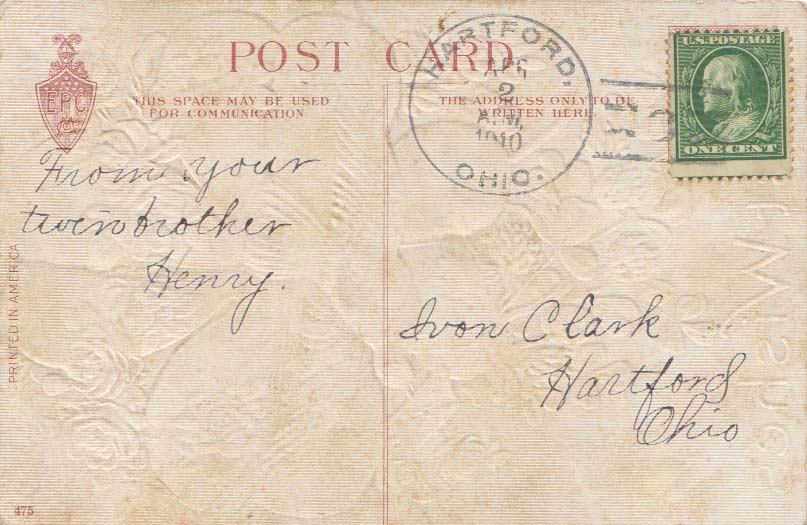 POST CARD
EPC
THIS SPACE MAY BE USED
FOR COMMUNICATION
THE ADDRESS ONLY TO BE
WRITTEN HERE
HARTFORD,
APR
2
A.M.
1910
OHIO.
U.S. POSTAGE
ONE CENT
From your
twin brother
Henry.
Ivon Clark
Hartford
Ohio
PRINTED IN AMERICA
475